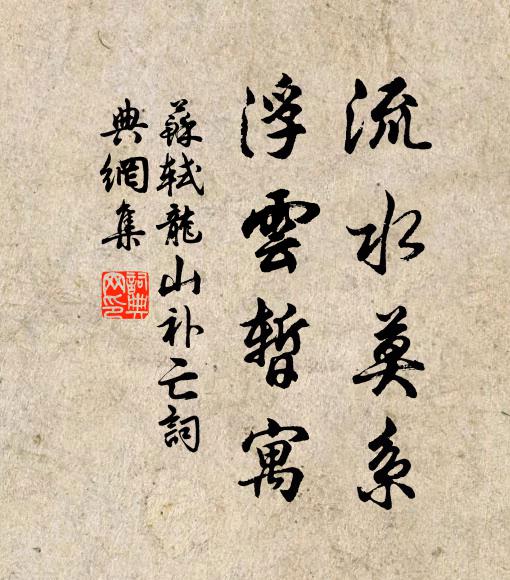 流水莫系
浮雲暫寓
蘇軾龍山补亡詞
典網集
詞典網印